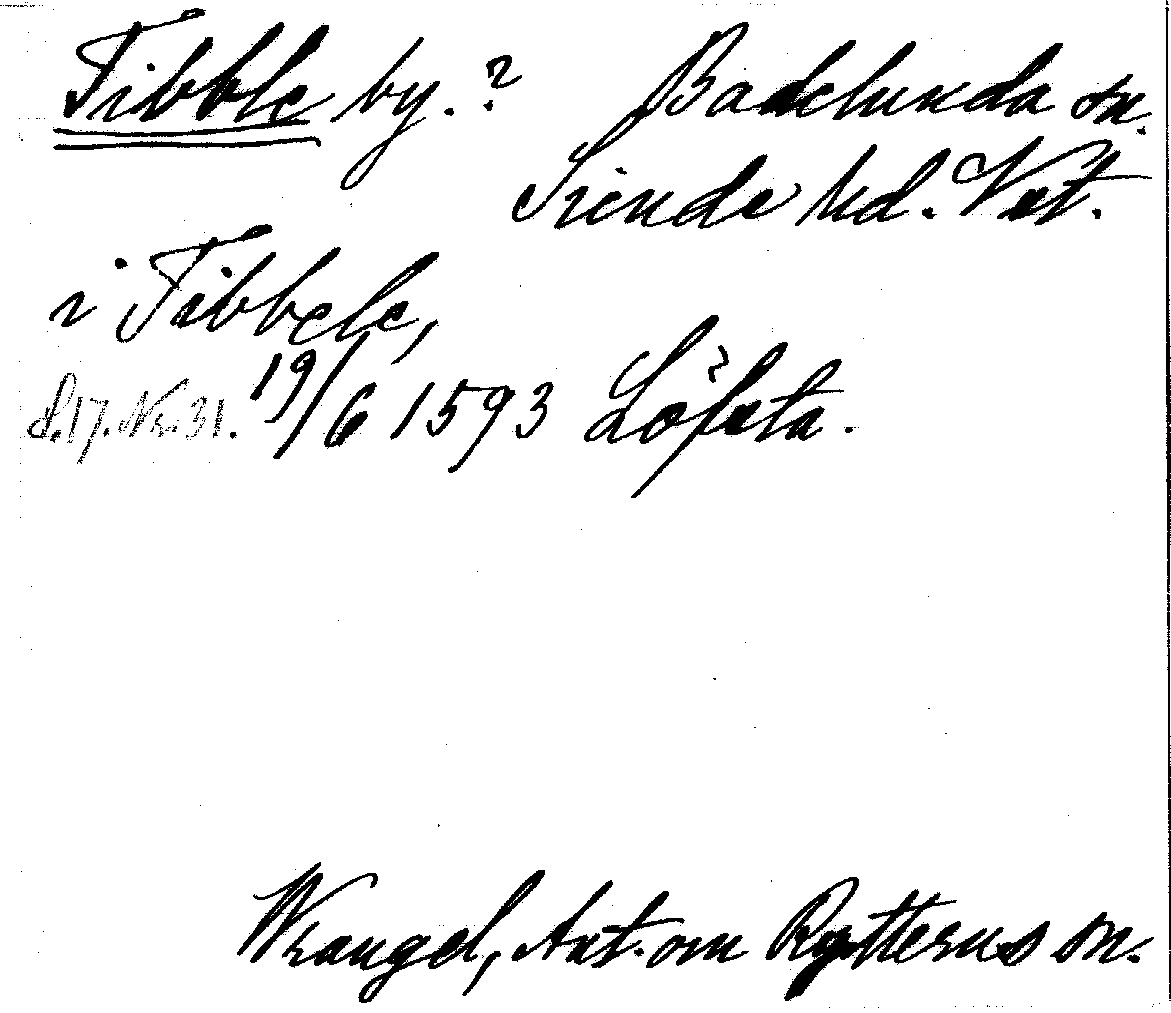 Tibble by.? Badelunda sn.
Siende hd. Vstm.
i Tibbele,
S.17.Nr.31. 19/6 1593 Löfsta.
Wrangel, Ant. om Rytterns sn.